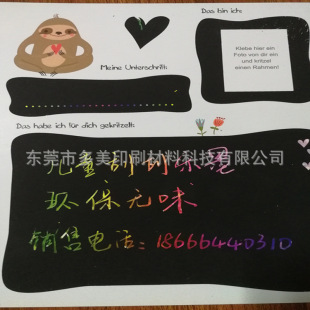 Das bin ich:
Klebe hier ein
Foto von dir ein
und kritzel
einen Rahmen!
Meine Unterschrift:
Das habe ich für dich gekritzelt:
东莞市多美印刷材料科技有限公司
儿童刮刮乐墨
环保无味
销售电话:18666440310